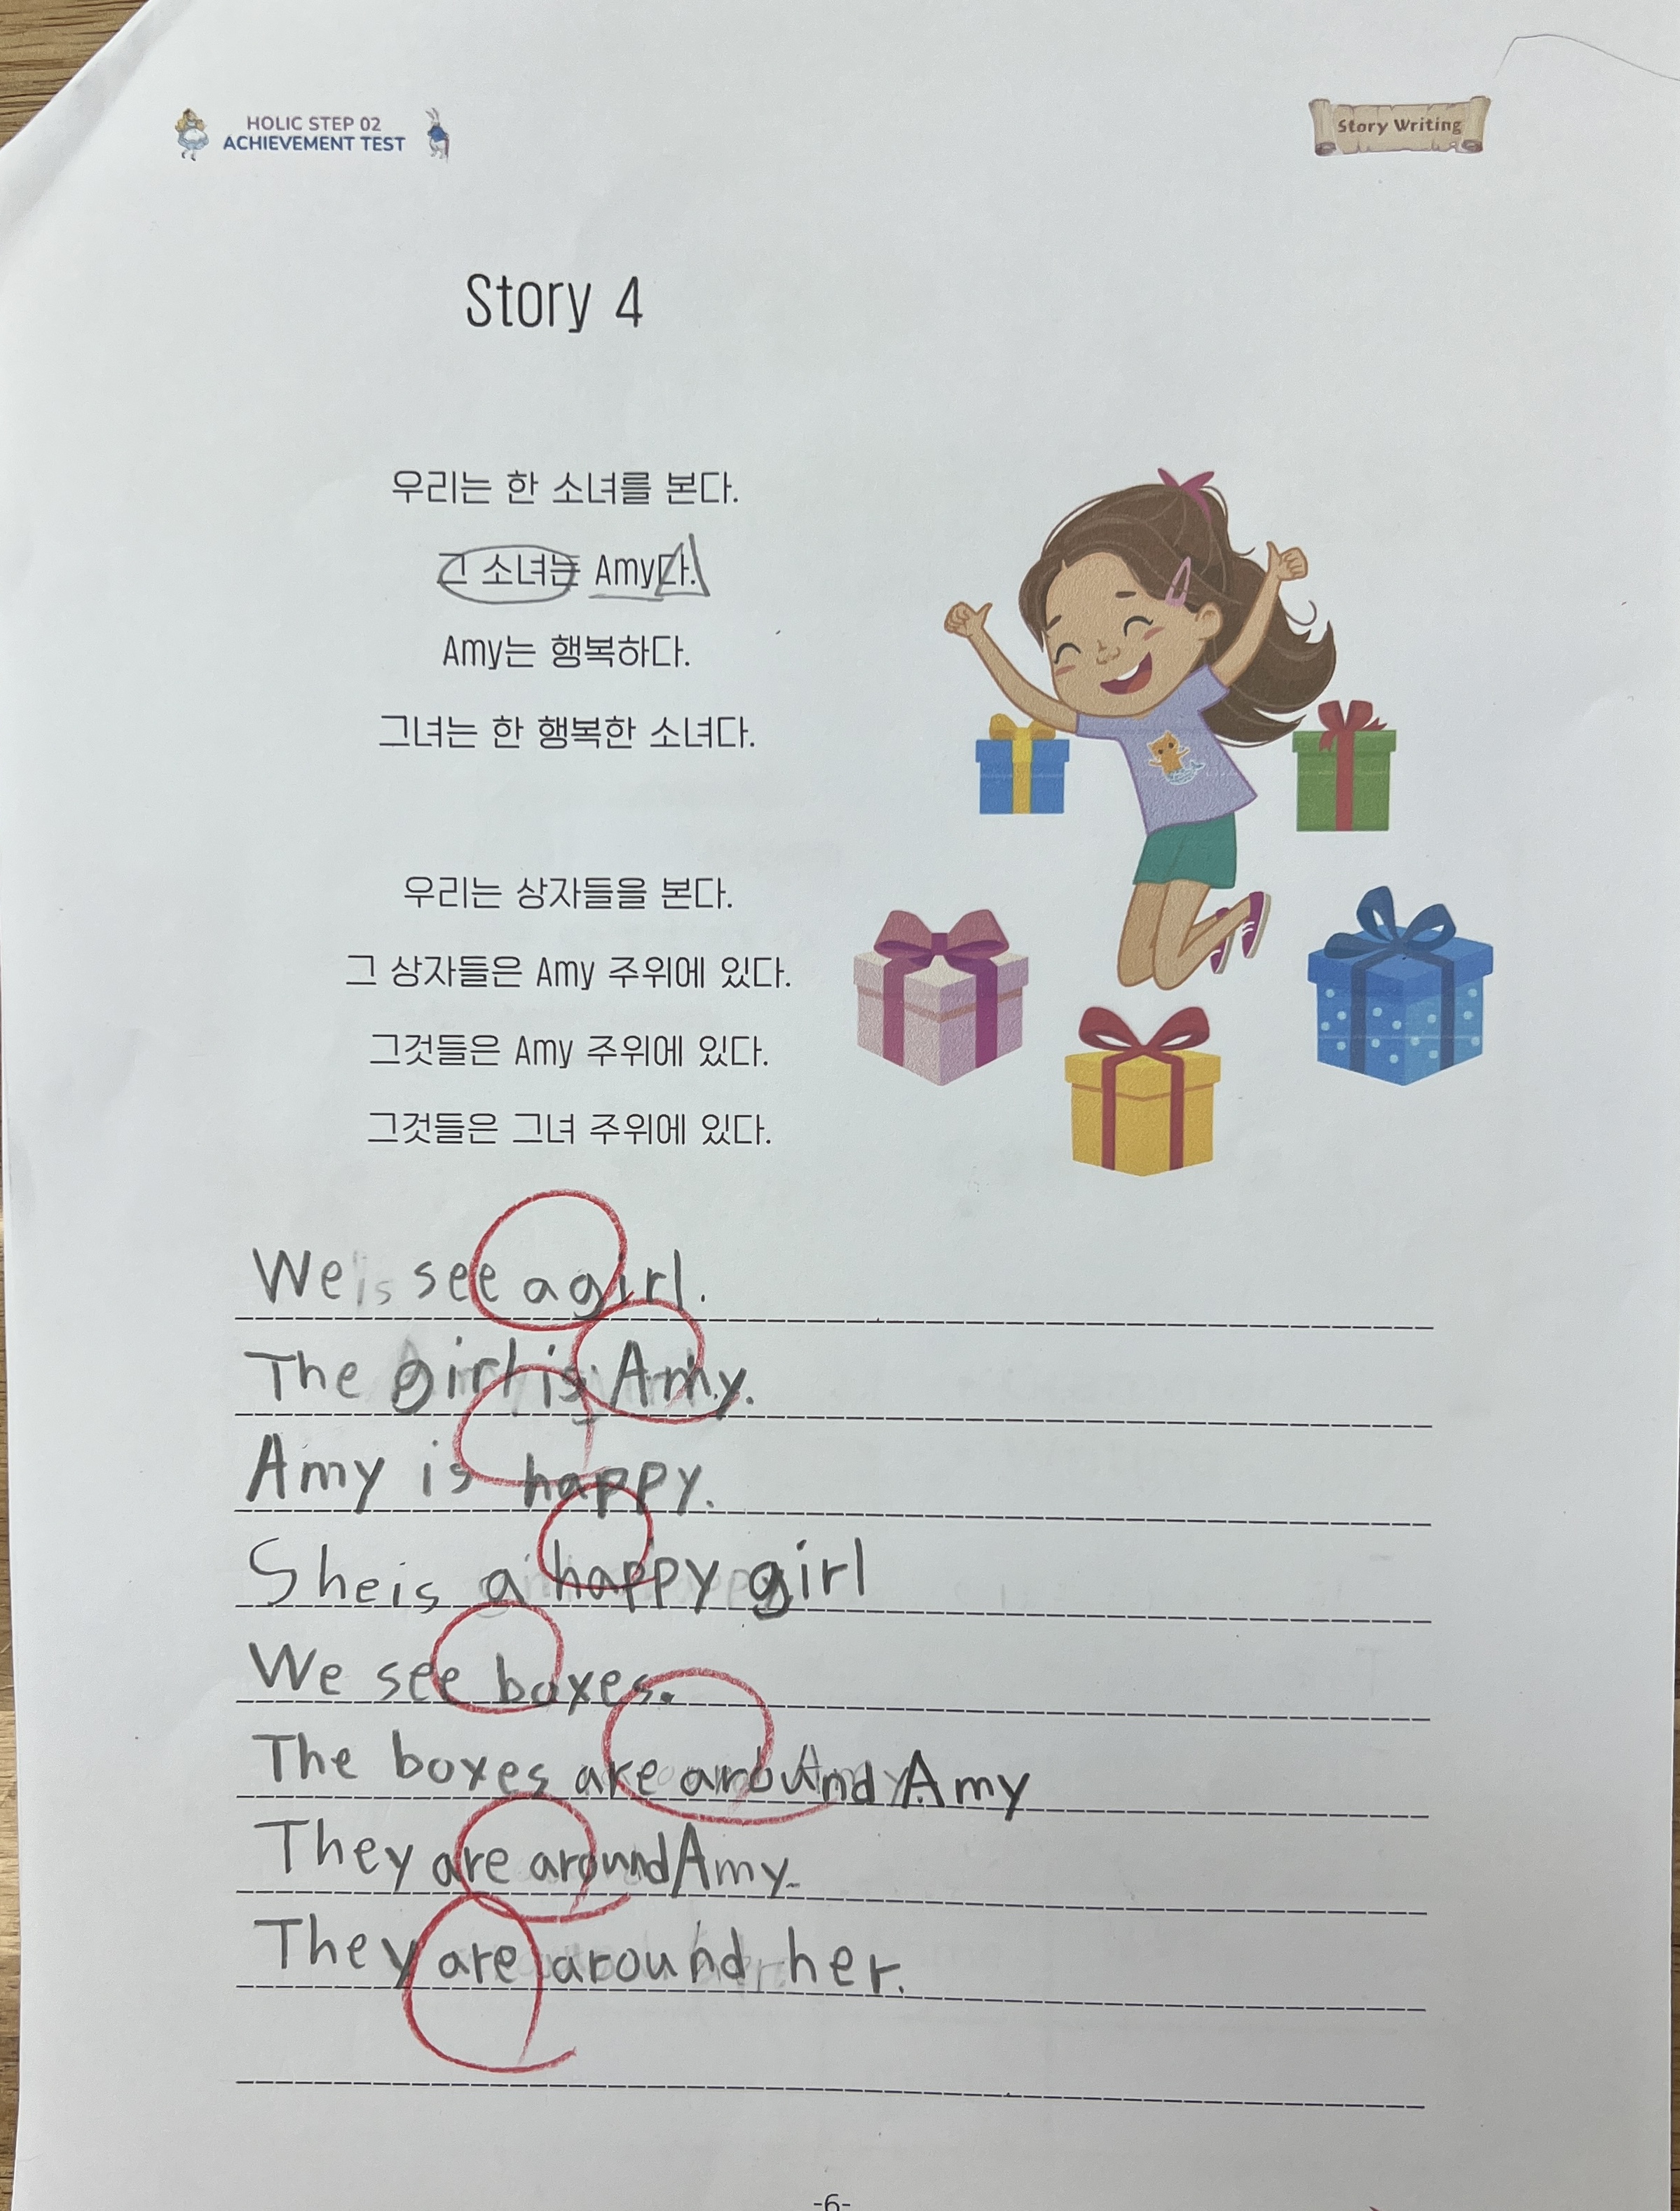 HOLIC STEP 02
ACHIEVEMENT TEST
Story Writing
Story 4
우리는 한 소녀를 본다.
그 소녀는 Amy다.
Amy는 행복하다.
그녀는 한 행복한 소녀다.
우리는 상자들을 본다.
그 상자들은 Amy 주위에 있다.
그것들은 Amy 주위에 있다.
그것들은 그녀 주위에 있다.
We see a girl.
The girl is Amy.
Amy is happy.
She is a happy girl
We see boxes.
The boxes are around Amy
They are around Amy.
They are around her.
-6-